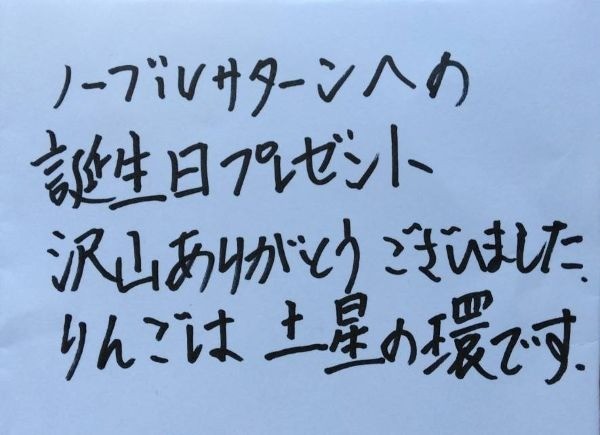 ノーブルサターンへの
誕生日プレゼント
沢山ありがとうございました.
りんごは土星の環です.